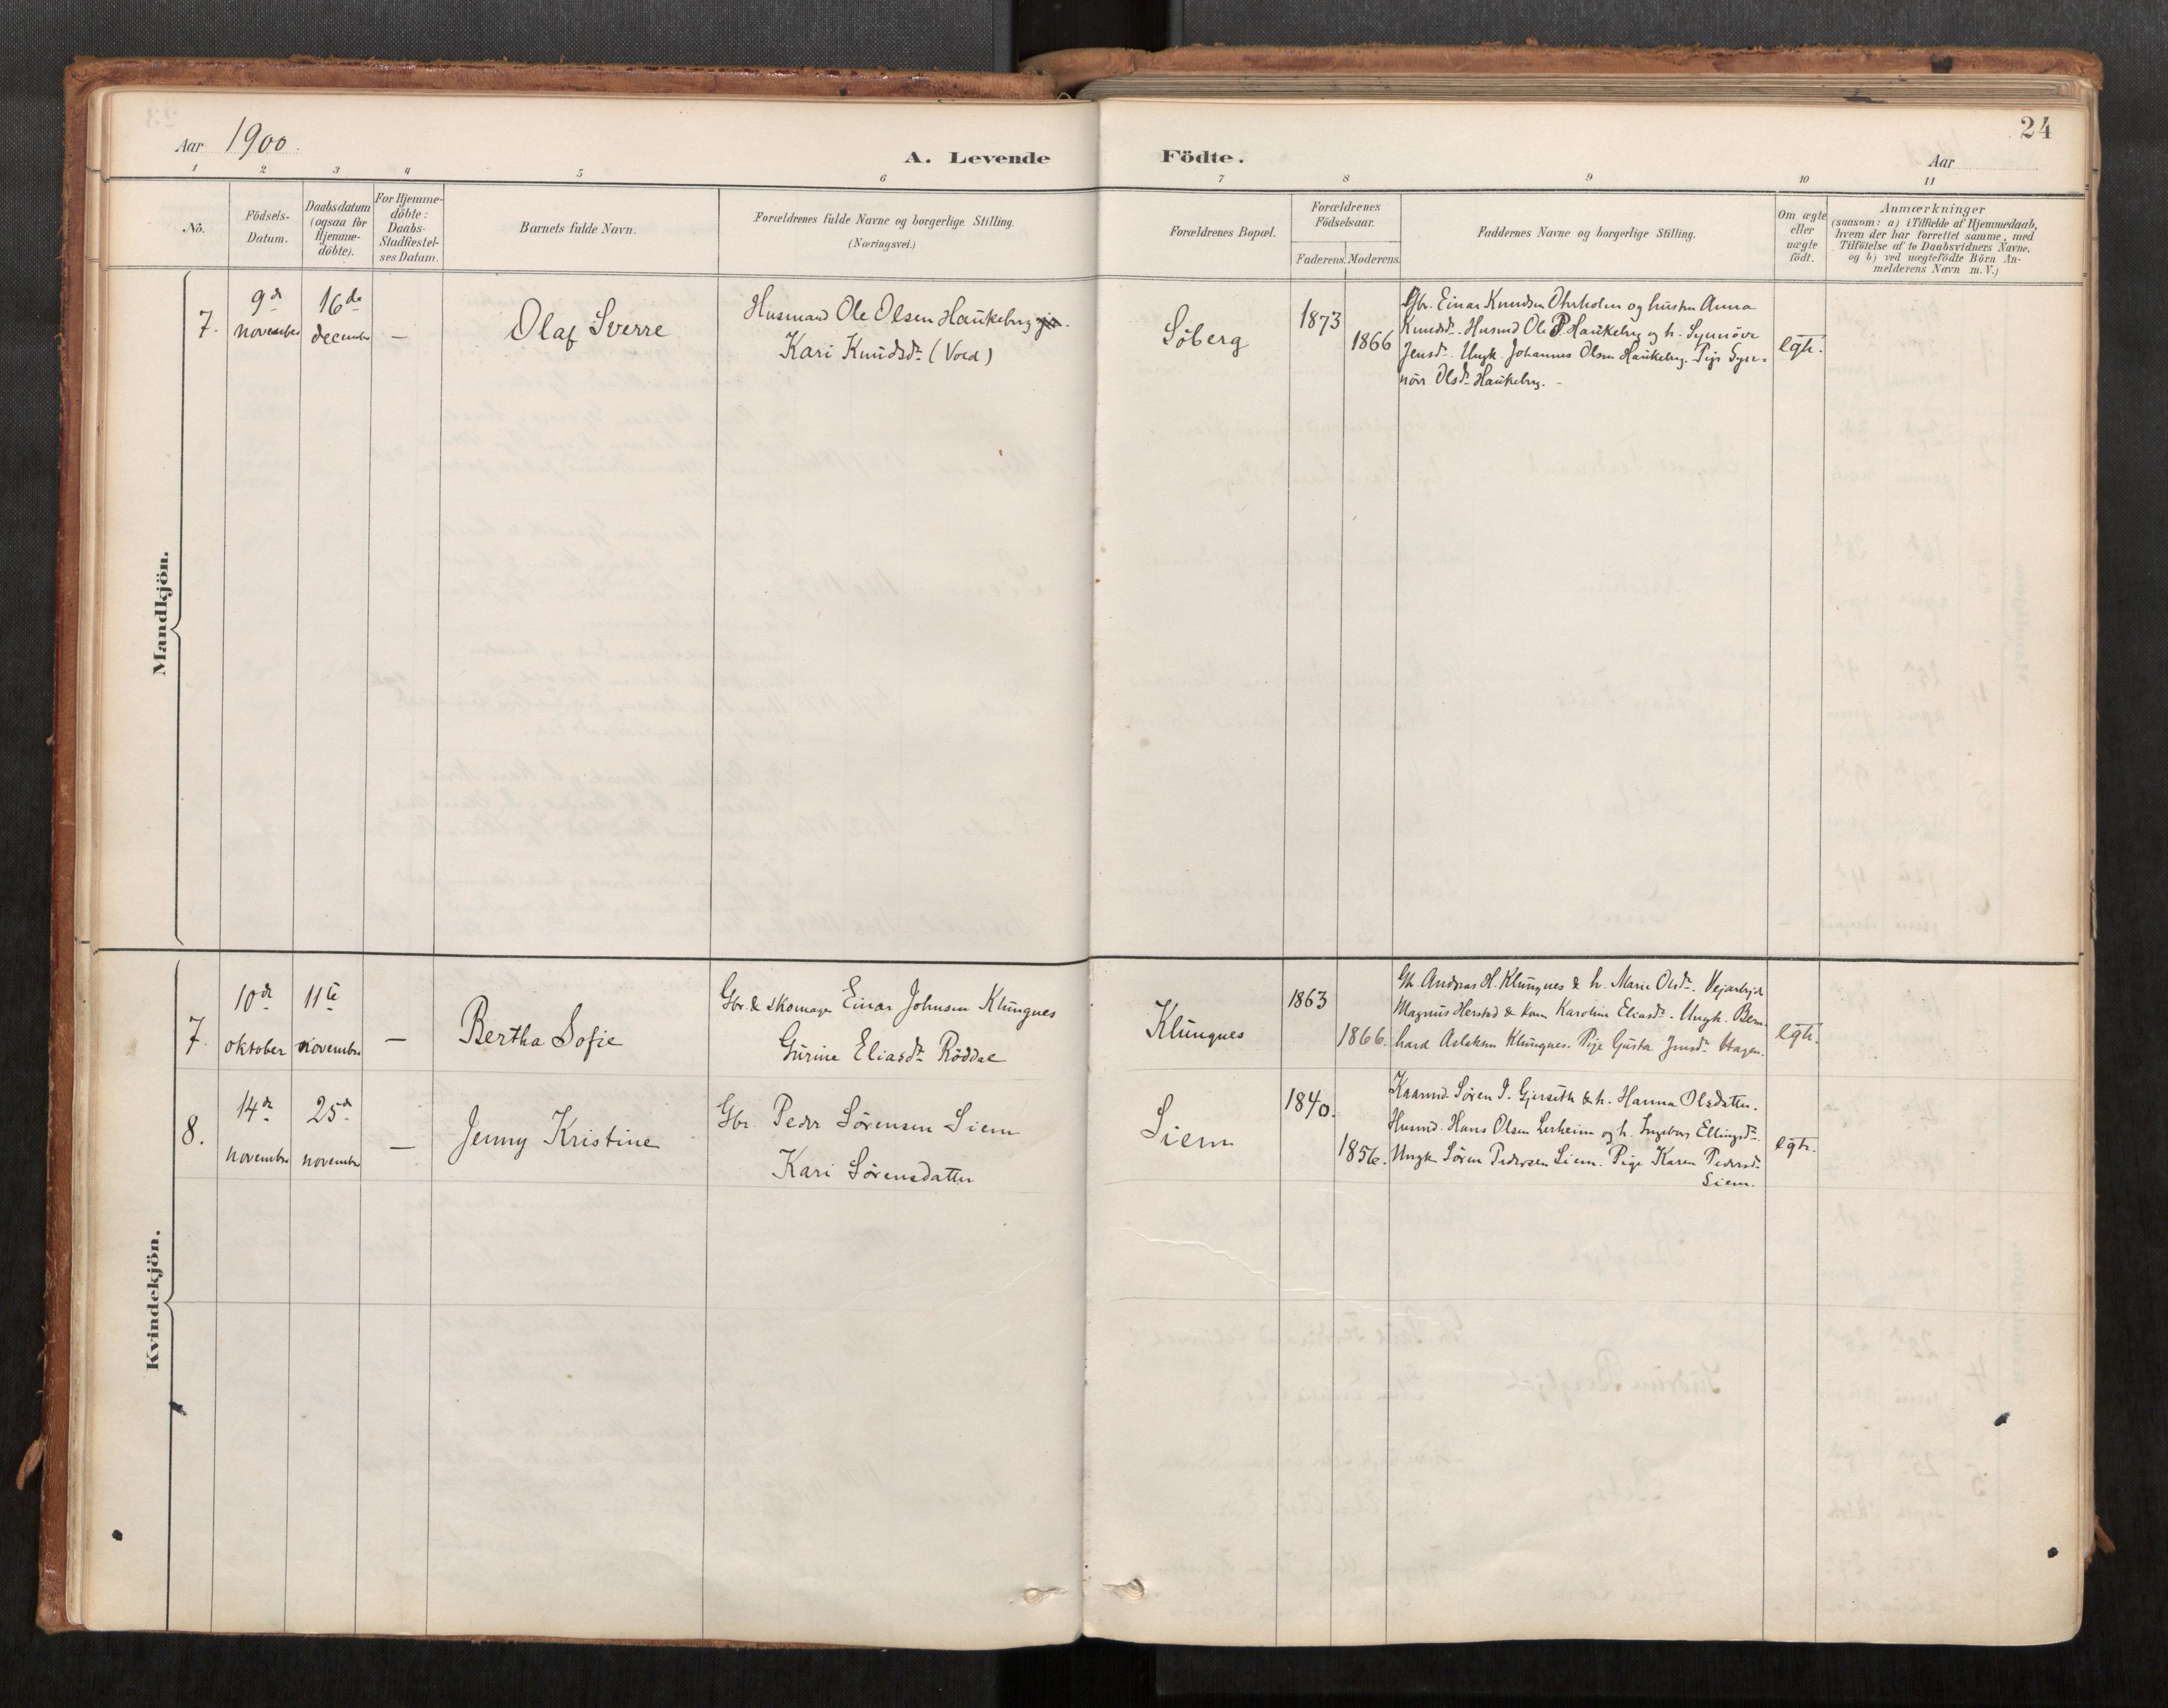 24
Aar 1900.
A. Levende Födte.
Aar
1 2 3 4 5 6 7 8 9 10 11
Nö.
Födsels-
Datum.
Daabsdatum
(ogsaa for
Hjemme-
döbte).
For Hjemme-
döbte:
Daabs-
Stadfæstel-
ses Datum.
Barnets fulde Navn.
Forældrenes fulde Navne og borgerlige Stilling.
(Næringsvei.)
Forældrenes Bopæl.
Forældrenes
Födselsaar.
Faderens. Moderens.
Faddernes Navne og borgerlige Stilling.
Om ægte
eller
uægte
födt.
Anmærkninger
(saasom: a) i Tilfælde af Hjemmedaab,
hvem der har forrettet samme, med
Tilföielse af to Daabsvidners Navne.
og b) ved uægtefödte Börn An-
melderens Navn m.V.)
Mandkjön.
7.
9de
november
16de
december
—
Olaf Sverre
Husmand Ole Olsen Haukeberg
Kari Knudsdr. (Vold)
Söberg
1873
1866
Gbr. Einar Knudsen Ohrholm og hustru Anna
Knudsdr. Husmd Ole P. Haukebrg og h. Synnöve
Jensdr. Ungk. Johannes Olsen Haukebrg. Pige Syn-
növe Olsdr. Haukebrg. -
egte.
Kvindekjön.
7.
10de
oktober
11te
november
—
Bertha Sofie
Gbr. & skomager Einar Johnsen Klungnes
Gurine Eliasdr. Röddal
Klungnes
1863
1866.
Gbr. Andreas H. Klungnes & h. Marie Olsdr. Vejarbejd.
Magnus Herstad & kone Karoline Eliasdr. Ungk. Bern-
hard Aslaksen Klungnes. Pige Gusta Jensdr. Hagen.
egte.
8.
14de
november
25de
november
—
Jenny Kristine
Gbr. Peder Sörensen Siem
Kari Sörensdatter
Siem
1840.
1856.
Kaarmd. Sören I. Gjerseth & h. Hanna Olsdatter.
Husmd. Hans Olsen Lerheim og h. Ingeborg Ellingsdr.
Ungk. Sören Pedersen Siem. Pige Karen Pedersdr.
Siem.
egte.